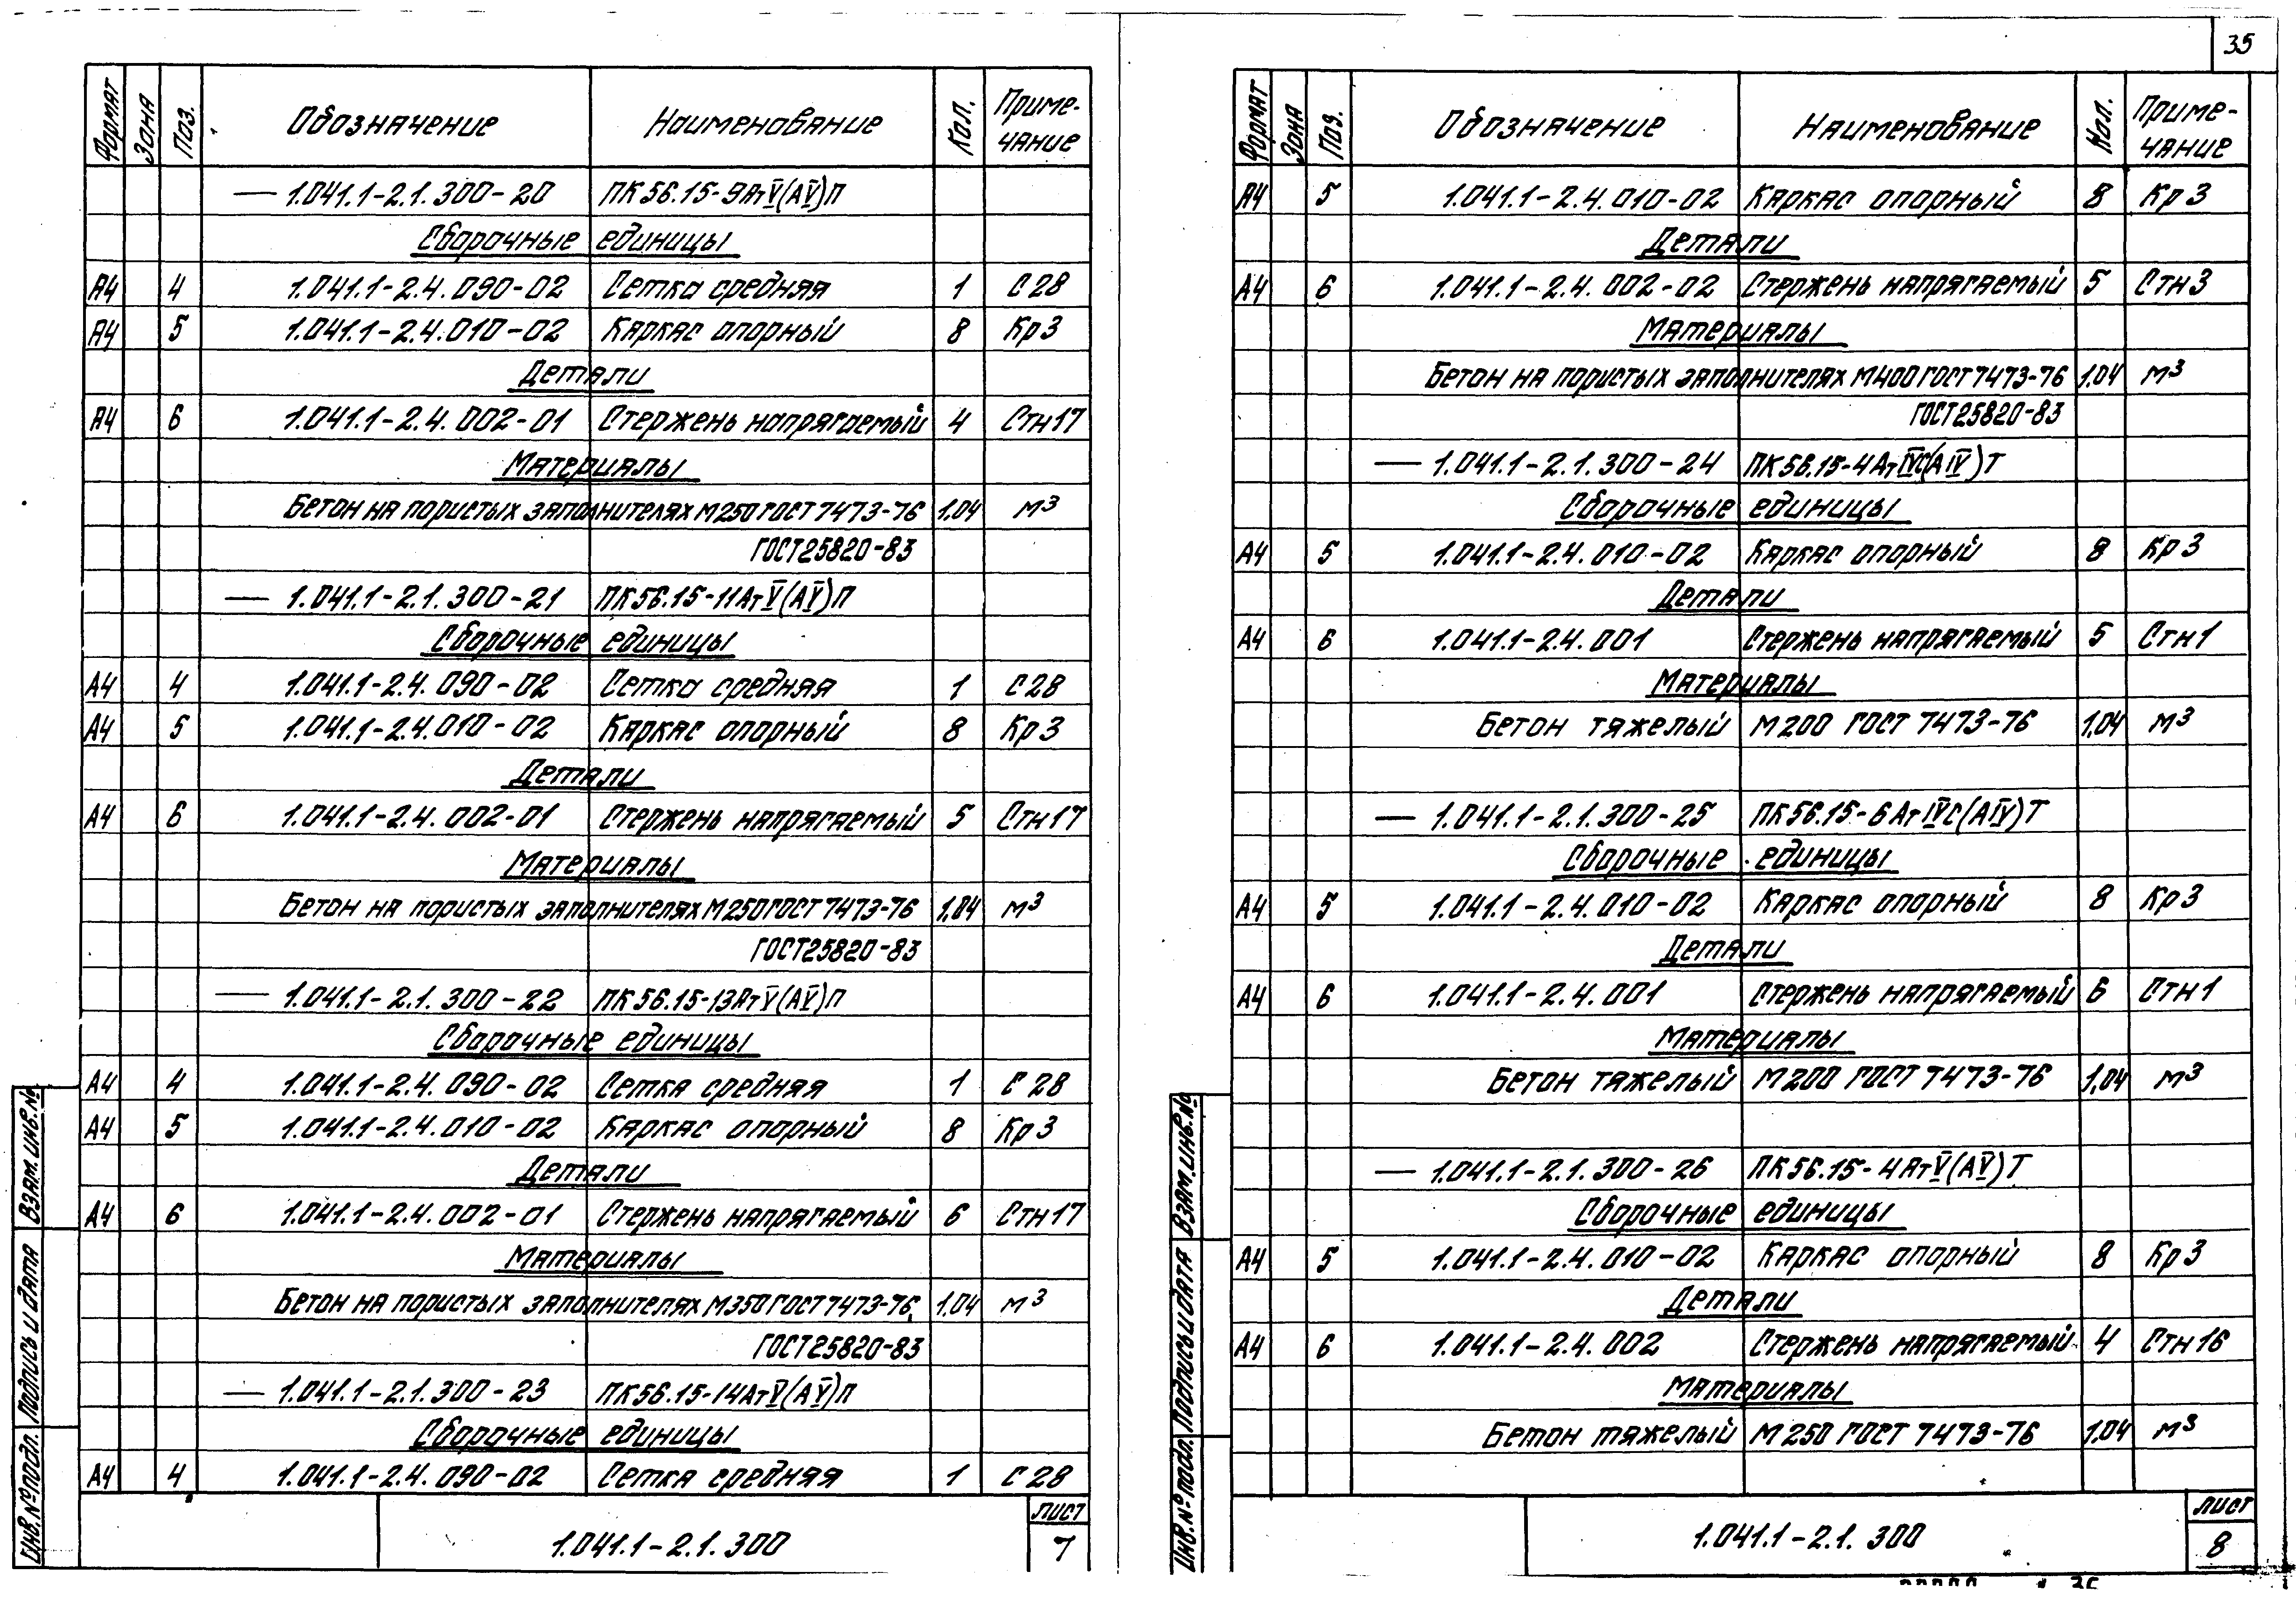 35
Формат Зона Поз. Обозначение Наименование Кол. Приме-
чание
— 1.041.1-2.1.300-20 ПК56.15-9АтV(АV)П
Сборочные единицы
А4 4 1.041.1-2.4.090-02 Сетка средняя 1 С28
А4 5 1.041.1-2.4.010-02 Каркас опорный 8 Кр3
Детали
А4 6 1.041.1-2.4.002-01 Стержень напрягаемый 4 Стн17
Материалы
Бетон на пористых заполнителях М250 ГОСТ 7473-76 1,04 м³
ГОСТ25820-83
— 1.041.1-2.1.300-21 ПК56.15-11АтV(АV)П
Сборочные единицы
А4 4 1.041.1-2.4.090-02 Сетка средняя 1 С28
А4 5 1.041.1-2.4.010-02 Каркас опорный 8 Кр3
Детали
А4 6 1.041.1-2.4.002-01 Стержень напрягаемый 5 Стн17
Материалы
Бетон на пористых заполнителях М250 ГОСТ 7473-76 1,04 м³
ГОСТ25820-83
— 1.041.1-2.1.300-22 ПК56.15-13АтV(АV)П
Сборочные единицы
А4 4 1.041.1-2.4.090-02 Сетка средняя 1 С28
А4 5 1.041.1-2.4.010-02 Каркас опорный 8 Кр3
Детали
А4 6 1.041.1-2.4.002-01 Стержень напрягаемый 6 Стн17
Материалы
Бетон на пористых заполнителях М350 ГОСТ 7473-76 1,04 м³
ГОСТ25820-83
— 1.041.1-2.1.300-23 ПК56.15-14АтV(АV)П
Сборочные единицы
А4 4 1.041.1-2.4.090-02 Сетка средняя 1 С28
Инв.№ подл. Подпись и дата Взам.инв.№
1.041.1-2.1.300
лист
7
Формат Зона Поз. Обозначение Наименование Кол. Приме-
чание
А4 5 1.041.1-2.4.010-02 Каркас опорный 8 Кр3
Детали
А4 6 1.041.1-2.4.002-02 Стержень напрягаемый 5 Стн3
Материалы
Бетон на пористых заполнителях М400 ГОСТ 7473-76 1,04 м³
ГОСТ25820-83
— 1.041.1-2.1.300-24 ПК56.15-4АтIVС(АIV)Т
Сборочные единицы
А4 5 1.041.1-2.4.010-02 Каркас опорный 8 Кр3
Детали
А4 6 1.041.1-2.4.001 Стержень напрягаемый 5 Стн1
Материалы
Бетон тяжелый М200 ГОСТ 7473-76 1,04 м³
— 1.041.1-2.1.300-25 ПК56.15-6АтIVС(АIV)Т
Сборочные единицы
А4 5 1.041.1-2.4.010-02 Каркас опорный 8 Кр3
Детали
А4 6 1.041.1-2.4.001 Стержень напрягаемый 6 Стн1
Материалы
Бетон тяжелый М200 ГОСТ 7473-76 1,04 м³
— 1.041.1-2.1.300-26 ПК56.15-4АтV(АV)Т
Сборочные единицы
А4 5 1.041.1-2.4.010-02 Каркас опорный 8 Кр3
Детали
А4 6 1.041.1-2.4.002 Стержень напрягаемый 4 Стн16
Материалы
Бетон тяжелый М250 ГОСТ 7473-76 1,04 м³
Инв.№ подл. Подпись и дата Взам.инв.№
1.041.1-2.1.300
лист
8